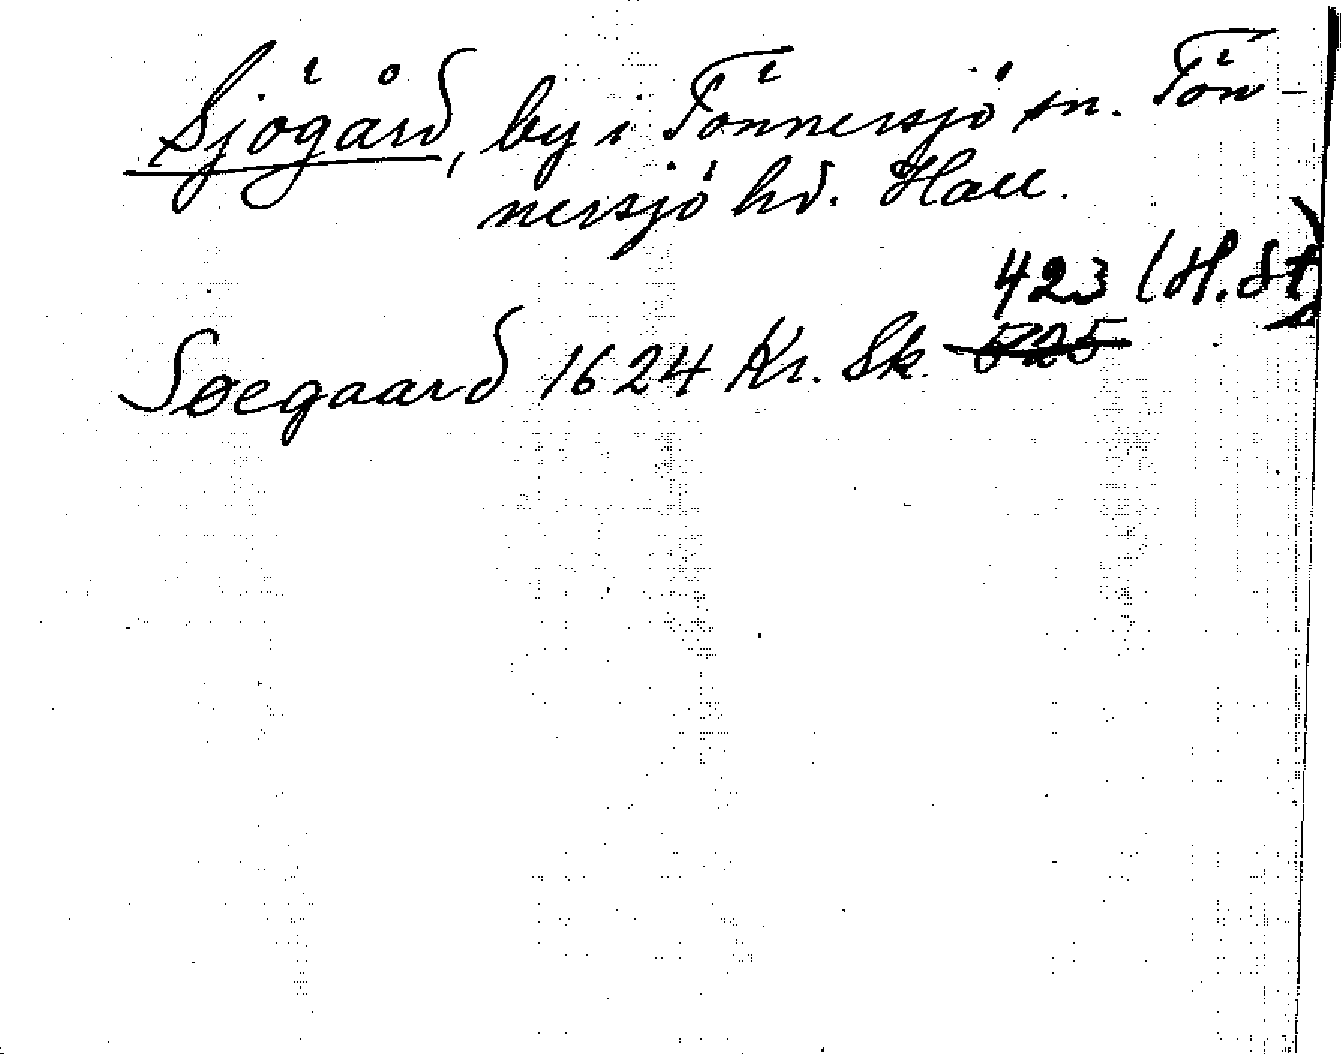 Sjögård, by i Tönnersjö sn. Tön-
nersjö hd. Hall.
423 (H. St)
Søegaard 1624 Kr. Sk. 525